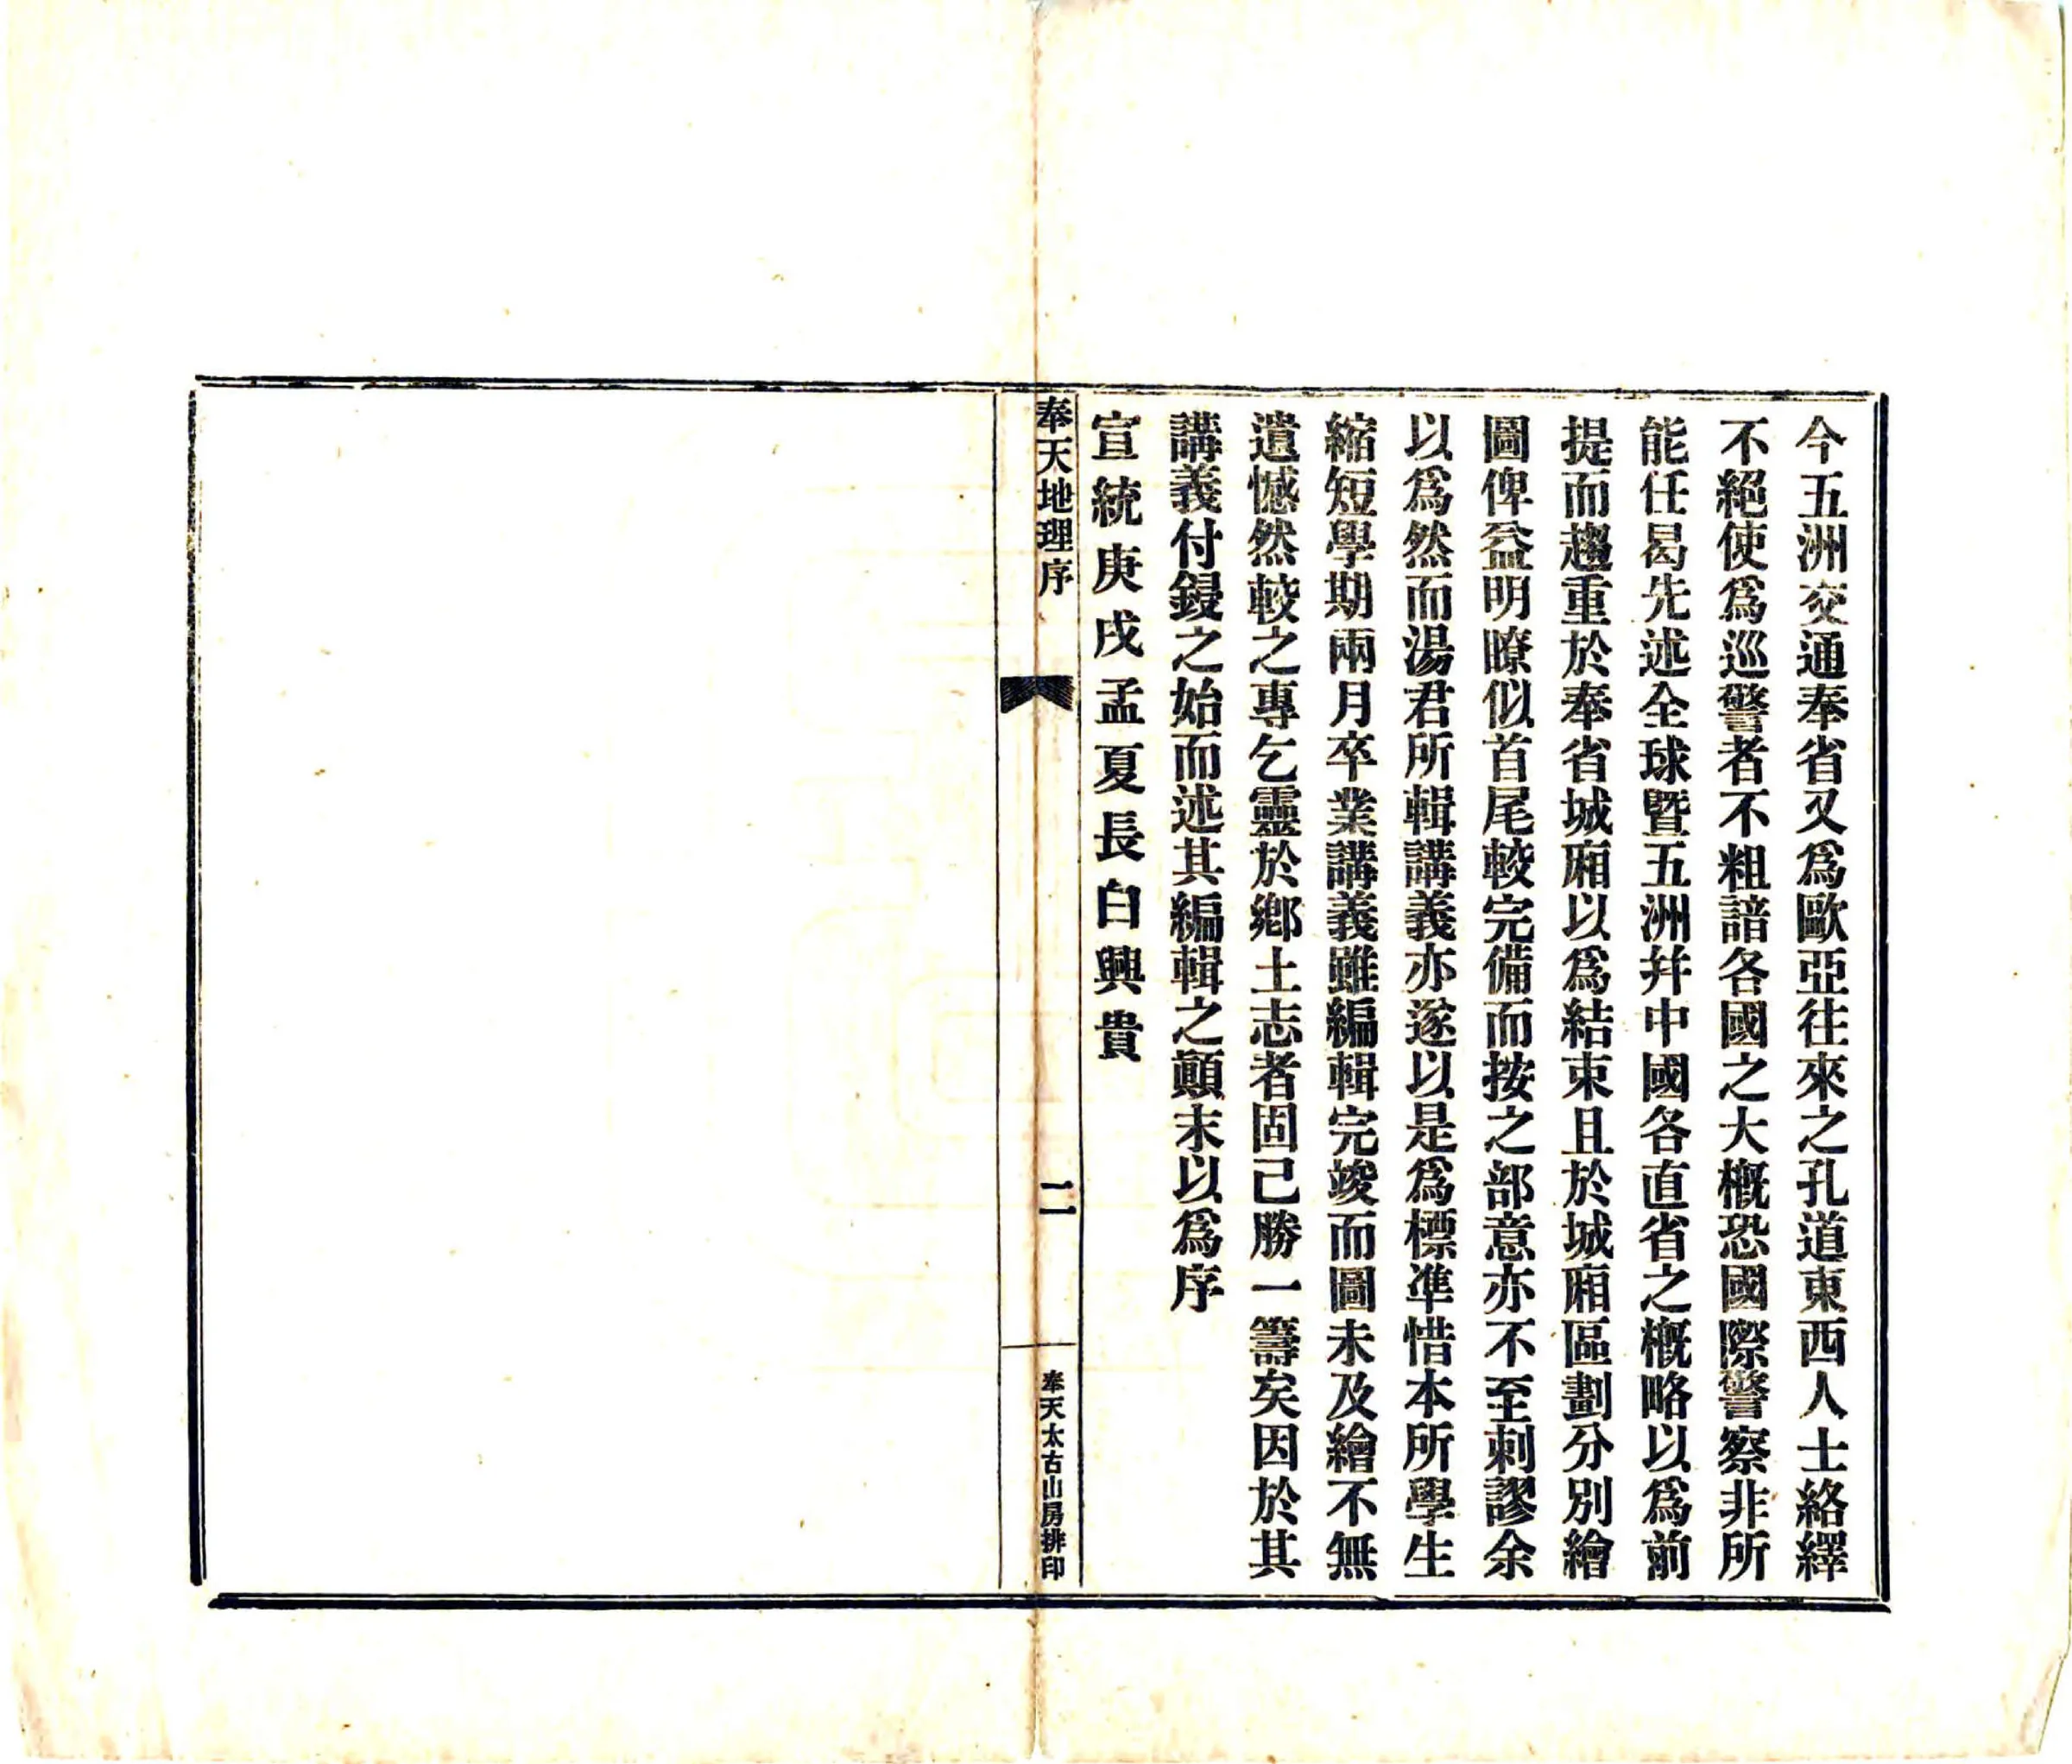 今五洲交通奉省又爲歐亞往來之孔道東西人士絡繹
不絕使爲巡警者不粗諳各國之大槪恐國際警察非所
能任曷先述全球暨五洲幷中國各直省之槪略以爲前
提而趨重於奉省城廂以爲結束且於城廂區劃分別繪
圖俾益明瞭似首尾較完備而按之部意亦不至刺謬余
以爲然而湯君所輯講義亦遂以是爲標準惜本所學生
縮短學期兩月卒業講義雖編輯完竣而圖未及繪不無
遺憾然較之專乞靈於鄉土志者固己勝一籌矣因於其
講義付鋟之始而述其編輯之顚末以爲序
宣統庚戌孟夏長白興貴
奉天地理序
二
奉天太古山房排印